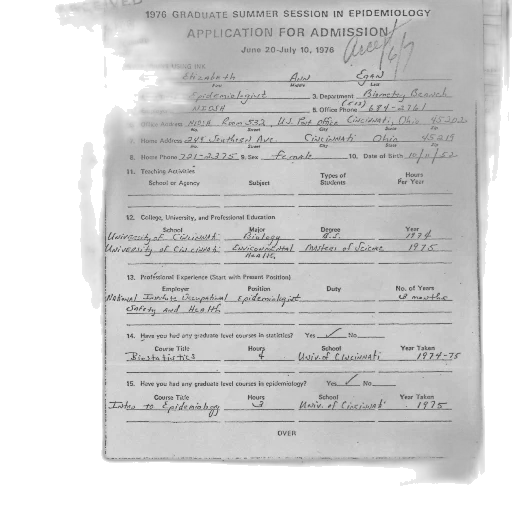 1976 GRADUATE SUMMER SESSION IN EPIDEMIOLOGY
APPLICATION FOR ADMISSION
June 20-July 10, 1976
Accept 6/7
USING INK
Elizabeth Ann Egan
First Middle Last
Epidemiologist 3. Department Biometry Branch
NIOSH 5. Office Phone (513) 684-2761
Office Address NIOSH Room 532, U.S. Post Office Cincinnati, Ohio 45202
No. Street City State Zip
7. Home Address 248 Southern Ave. Cincinnati Ohio 45219
No. Street City State Zip
8. Home Phone 721-2375 9. Sex female 10. Date of Birth 10/11/52
11. Teaching Activities
School or Agency Subject Types of Students Hours Per Year
12. College, University, and Professional Education
School Major Degree Year
University of Cincinnati Biology B.S. 1974
University of Cincinnati Environmental Health Masters of Science 1975
13. Professional Experience (Start with Present Position)
Employer Position Duty No. of Years
National Institute Occupational Epidemiologist 8 months
Safety and Health
14. Have you had any graduate level courses in statistics? Yes ✓ No
Course Title Hours School Year Taken
Biostatistics 4 Univ. of Cincinnati 1974-75
15. Have you had any graduate level courses in epidemiology? Yes ✓ No
Course Title Hours School Year Taken
Intro to Epidemiology 3 Univ. of Cincinnati 1975
OVER